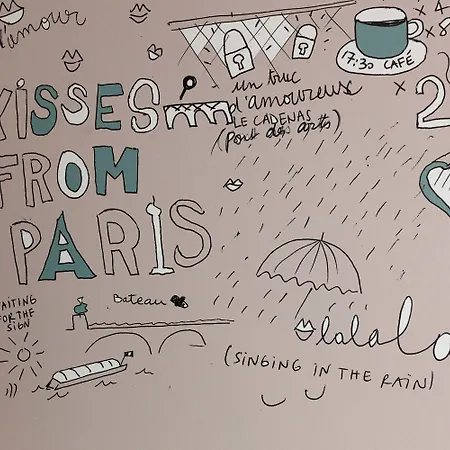 d'amour
x 4
x 8
17:30 CAFÉ
un truc
d'amoureux
LE CADENAS
(pont des arts)
x 2
KISSES
FROM
PARIS
WAITING
FOR THE
SIGN
Bateau
lalala
(SINGING IN THE RAIN)